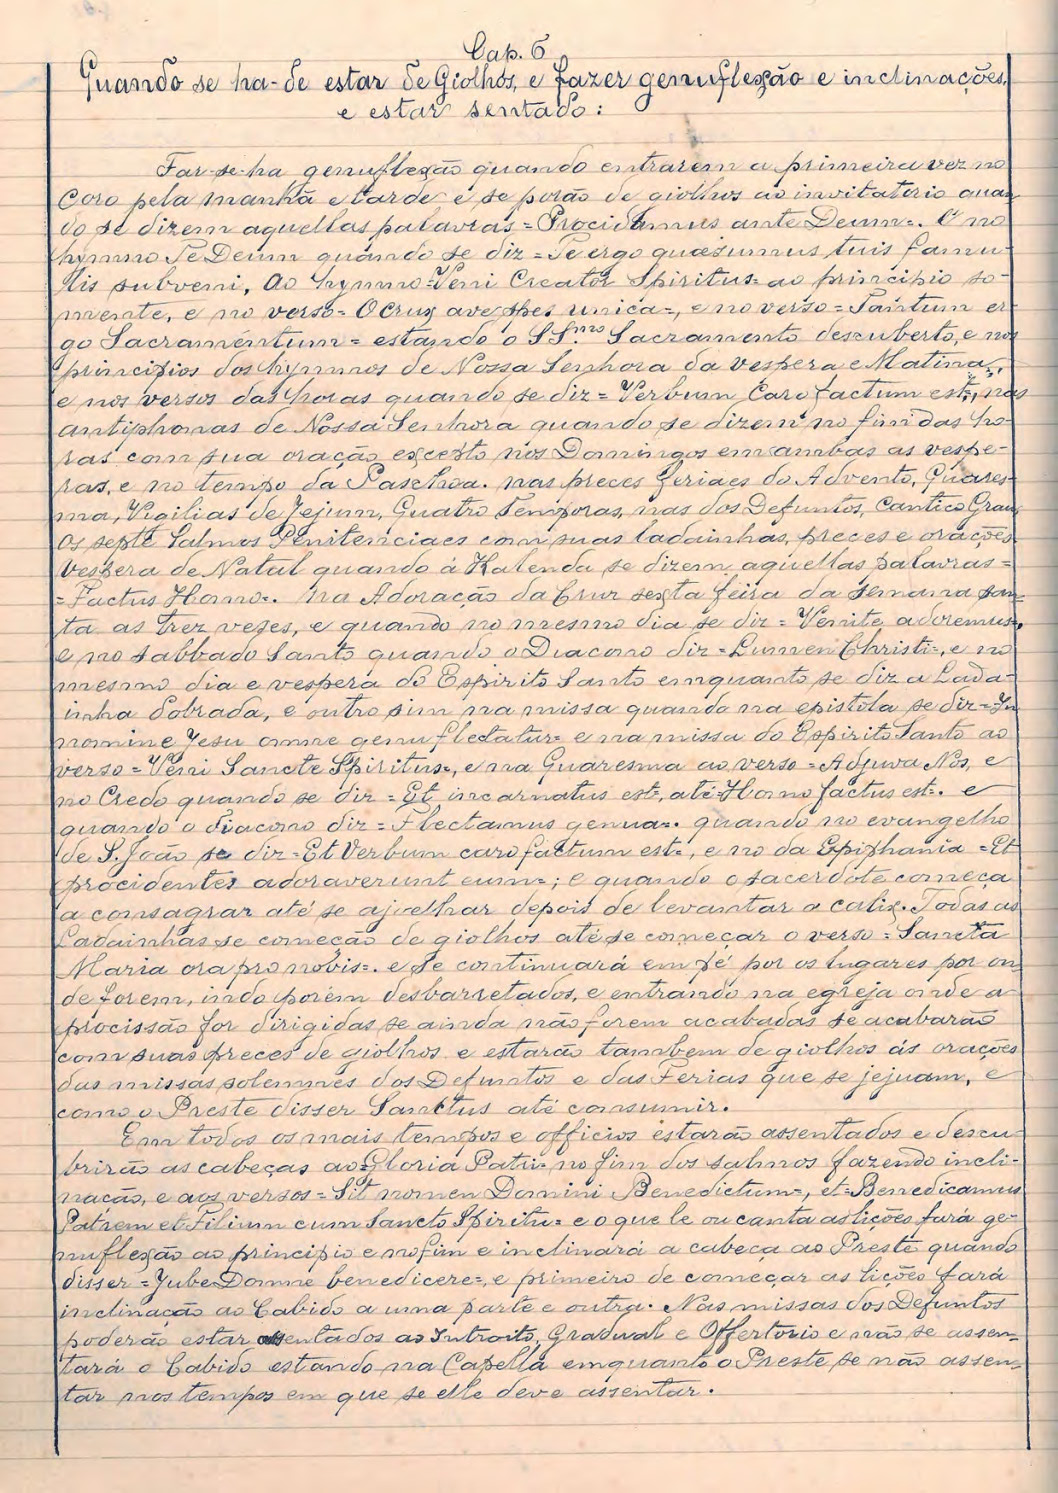 Cap. 6
Quando se ha-de estar de Giolhos, e fazer genuflexão e inclinações,
e estar sentado:
Far-se-ha genuflexão quando entrarem a primeira vez no
Coro pela manhã e tarde e se porão de giolhos ao invitatorio quan-
do se dizem aquellas palavras = Procidamus ante Deum =. E no
hymno Te Deum quando se diz = Te ergo quæsumus tuis famu-
lis subveni, Ao hymno = Veni Creator Spiritus = ao principio so-
mente, e no verso = O Crux ave spes unica =, e no verso = Tantum er-
go Sacramentum = estando o SS.mo Sacramento descuberto, e nos
principios dos hymnos de Nossa Senhora da vespera e Matinas,
e nos versos das horas quando se diz = Verbum Caro factum est =, nas
antiphonas de Nossa Senhora quando se dizem no fim das ho-
ras com sua oração excepto nos Domingos em ambas as vespe-
ras, e no tempo da Paschoa. nas preces feriaes do Advento, Quares-
ma, Vigilias de Jejum, Quatro Temporas, nas dos Defuntos, Cantico Grau
Os septe Salmos Penitenciaes com suas ladainhas, preces e orações
Vespera de Natal quando á Kalenda se dizem aquellas palavras =
= Factus Homo =. Na Adoração da Cruz sexta feira da semana san-
ta as trez vezes, e quando no mesmo dia se diz = Venite adoremus =,
e no sabbado Santo quando o Diacono diz = Lumen Christi =, e no
mesmo dia e vespera do Espirito Santo emquanto se diz a Lada-
inha dobrada, e outro sim na missa quando na epistola se diz = In
nomine Jesu omne genu flectatur = e na missa do Espirito Santo ao
verso = Veni Sancte Spiritus =, e na Quaresma ao verso = Adjuva Nos, e
no Credo quando se diz = Et incarnatus est, até = Homo factus est =. e
quando o diacono diz = Flectamus genua =. quando no evangelho
de S. João se diz = Et Verbum caro factum est =, e no da Epiphania = Et
procidentes adoraverunt eum =; e quando o sacerdote começa
a consagrar até se ajoelhar depois de levantar a calix. Todas as
Ladainhas se começão de giolhos até se começar o verso = Sancta
Maria ora pro nobis =. e se continuará em pé por os lugares por on
de forem, indo porém desbarretados, e entrando na egreja onde a
procissão for dirigida, se ainda não forem acabadas se acabarão
com suas preces de giolhos e estarão tambem de giolhos ás orações
das missas solemnes dos Defuntos e das Ferias que se jejuam, e
como o Preste disser Sanctus até consumir.
Em todos os mais tempos e officios estarão assentados e descu-
brirão as cabeças ao = Gloria Patri = no fim dos salmos fazendo incli-
nação, e aos versos = Sit nomen Domini Benedictum =, et = Benedicamus
Patrem et Filium cum Sancto Spiritu = e o que le ou canta as lições fará ge-
nuflexão ao principio e no fim e inclinará a cabeça ao Preste quando
disser = Jube Domne benedicere =, e primeiro de começar as lições fará
inclinação ao Cabido a uma parte e outra. Nas missas dos Defuntos
poderão estar assentados ao Introito, Gradual e Offertorio e não se assen-
tará o Cabido estando na Capella emquanto o Preste se não assen-
tar nos tempos em que se elle deve assentar.